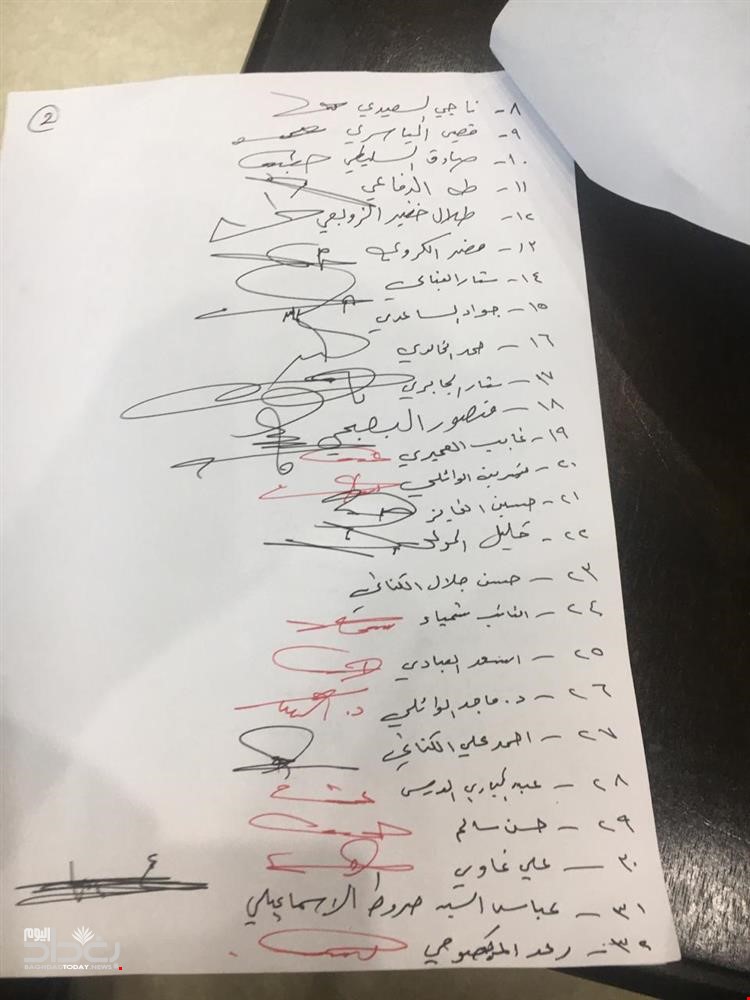 2
٨- ناجي السعيدي
٩- قصي الياسري
١٠- صادق السليطي
١١- طه الدفاعي
١٢- طلال خضير الزوبعي
١٣- مضر الكروي
١٤- ستار العتابي
١٥- جواد الساعدي
١٦- محمد الخالدي
١٧- ستار الجابري
١٨- منصور البعيجي
١٩- غايب العميري
٢٠- نسرين الوائلي
٢١- حسين العايز
٢٢- خليل المولى
٢٣- حسن جلال الكناني
٢٤- النائب شمياء
٢٥- اسعد العبادي
٢٦- د. ماجد الوائلي
د.
٢٧- احمد علي الكناني
٢٨- عبد الباري
٢٩- حسن سالم
٣٠- علي غاوي
٣١- عباس السيد صروط الاسماعيلي
٣٢- رعد المكصوصي
بغداد اليوم
BAGHDADTODAY.NEWS